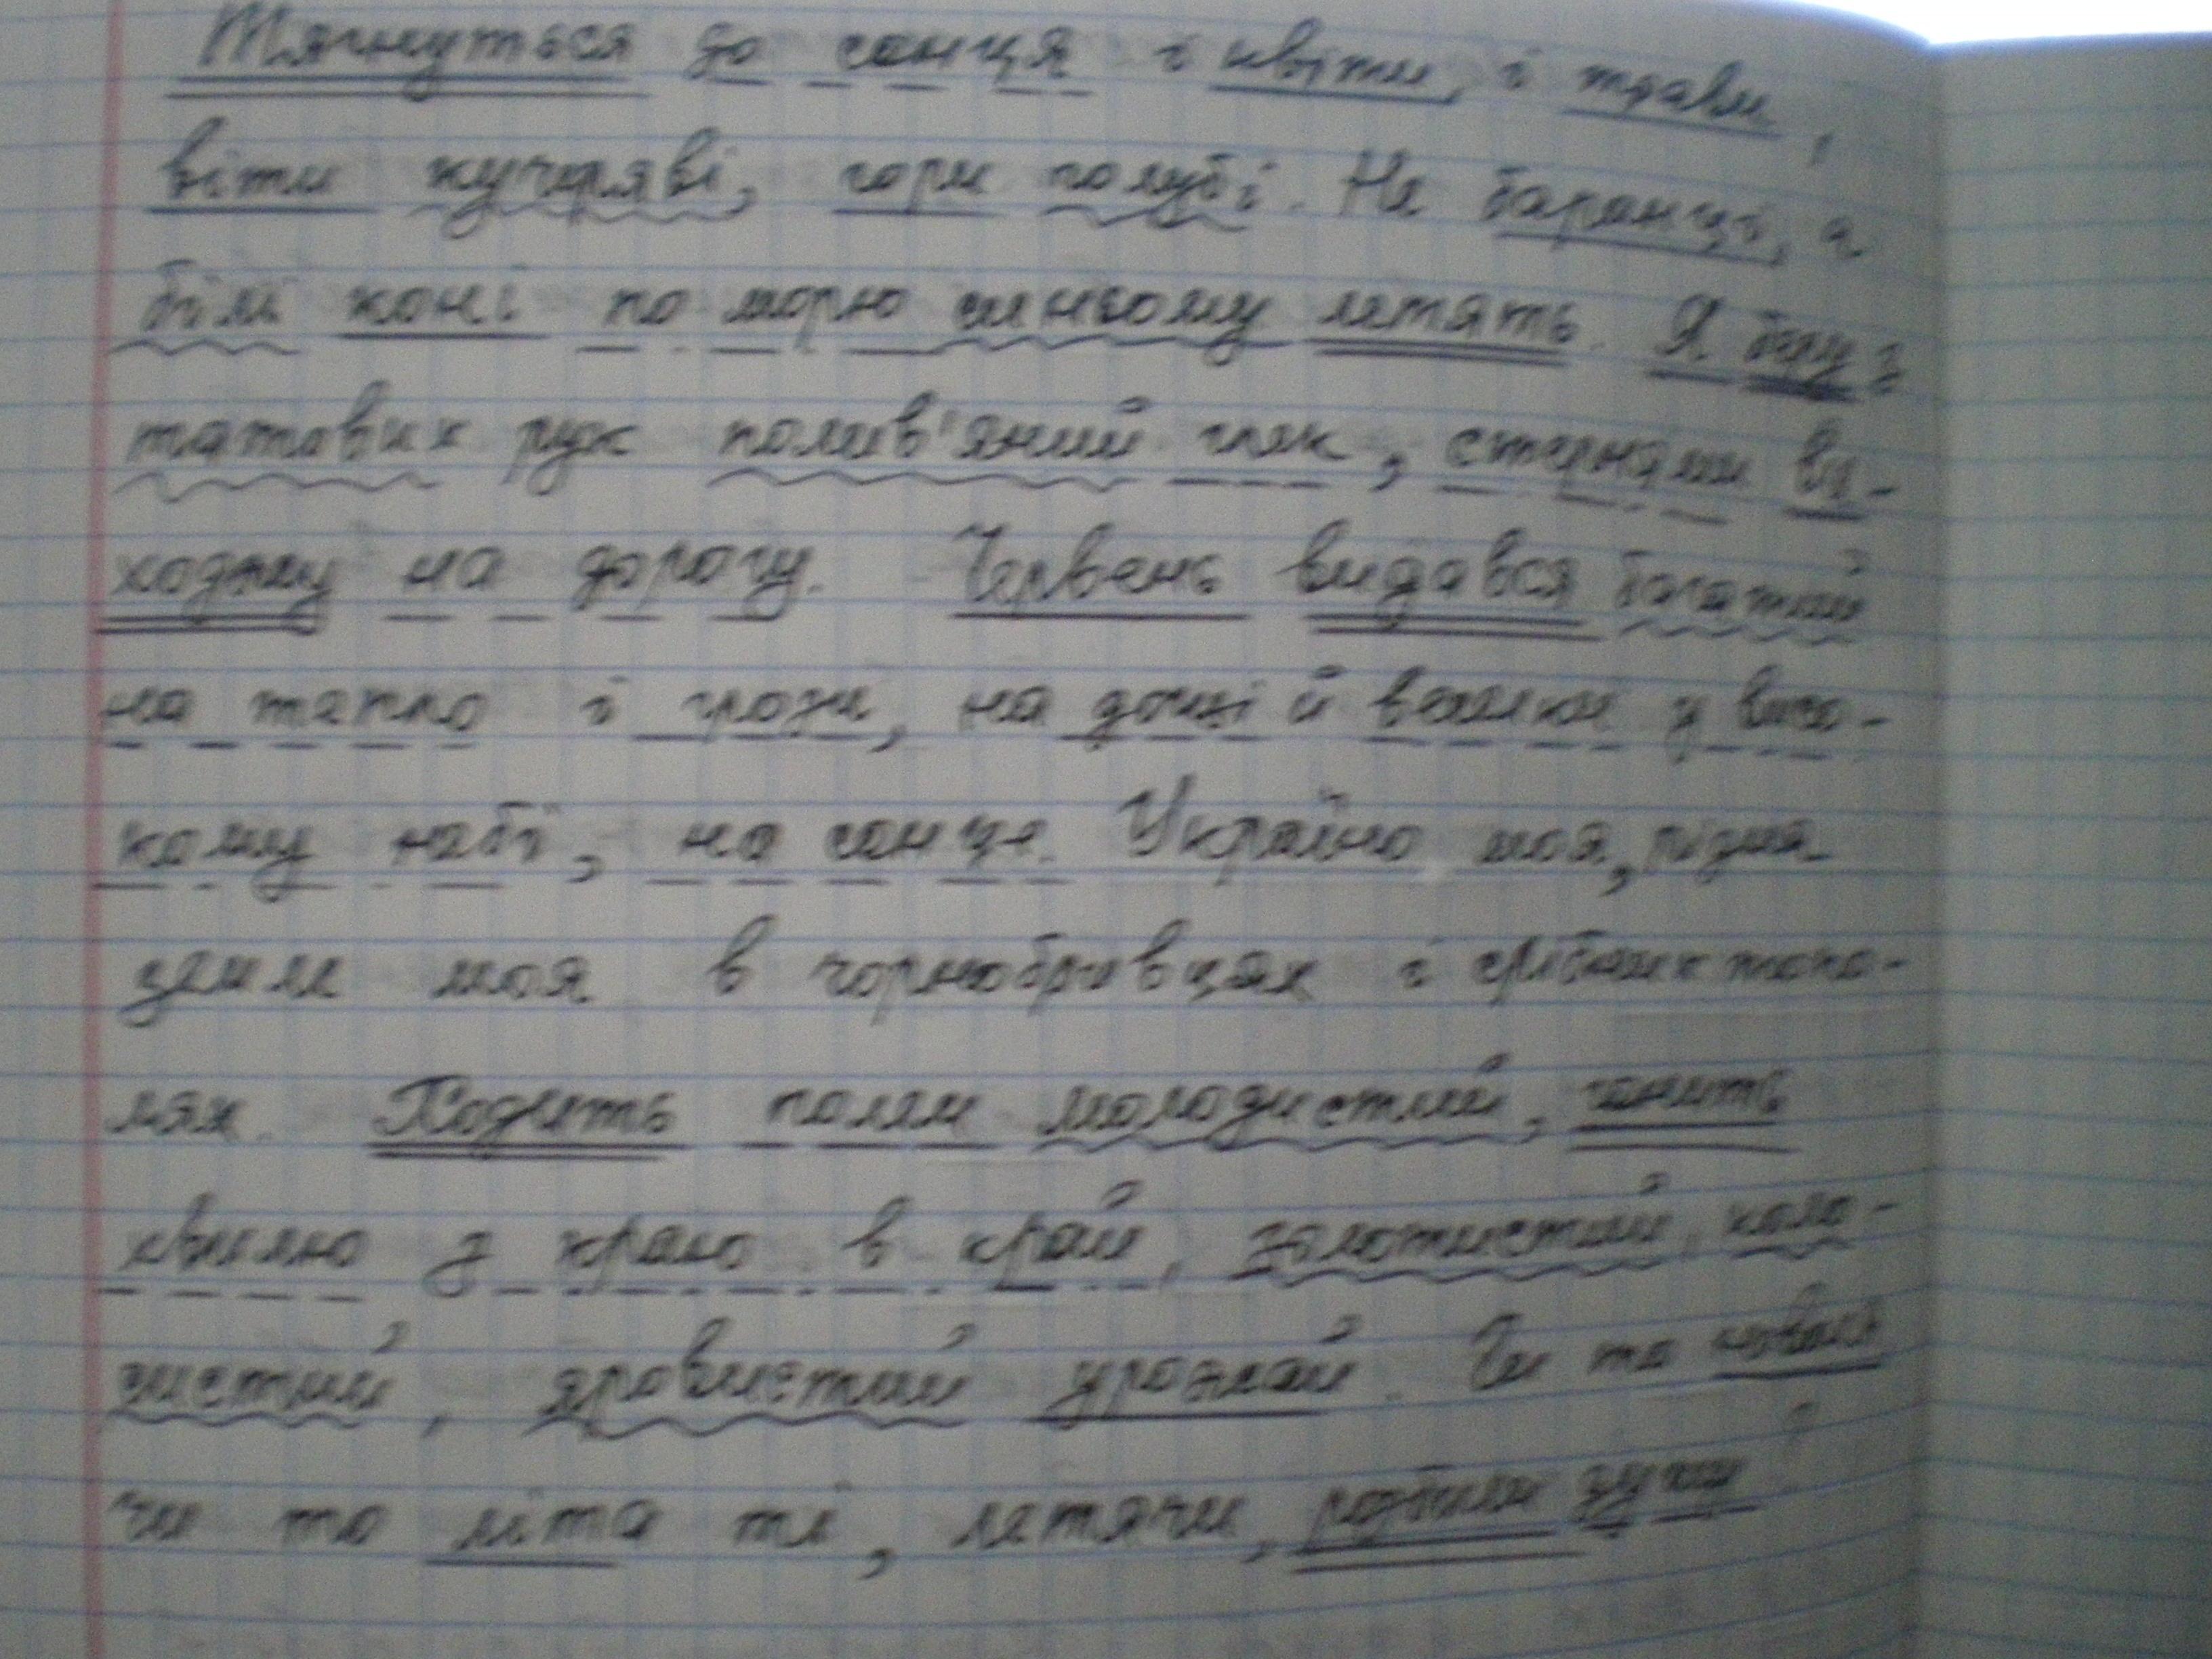 Тягнуться до сонця і квіти, і трави,
віти кучеряві, гори голубі. Не баранці, а
білі коні по морю синьому летять. Я беру з
татових рук полив'яний глек, стернями ви-
ходжу на дорогу. Червень видався багатий
на тепло і грози, на дощі й веселки у висо-
кому небі, на сонце. Україно моя, рідна
земле моя в чорнобривцях і срібних топо-
лях. Ходить полем молодистий, гонить
хвилю з краю в край, золотистий, коло-
систий, яровистий урожай. Чи то
чи то літа ті, летячи, губили